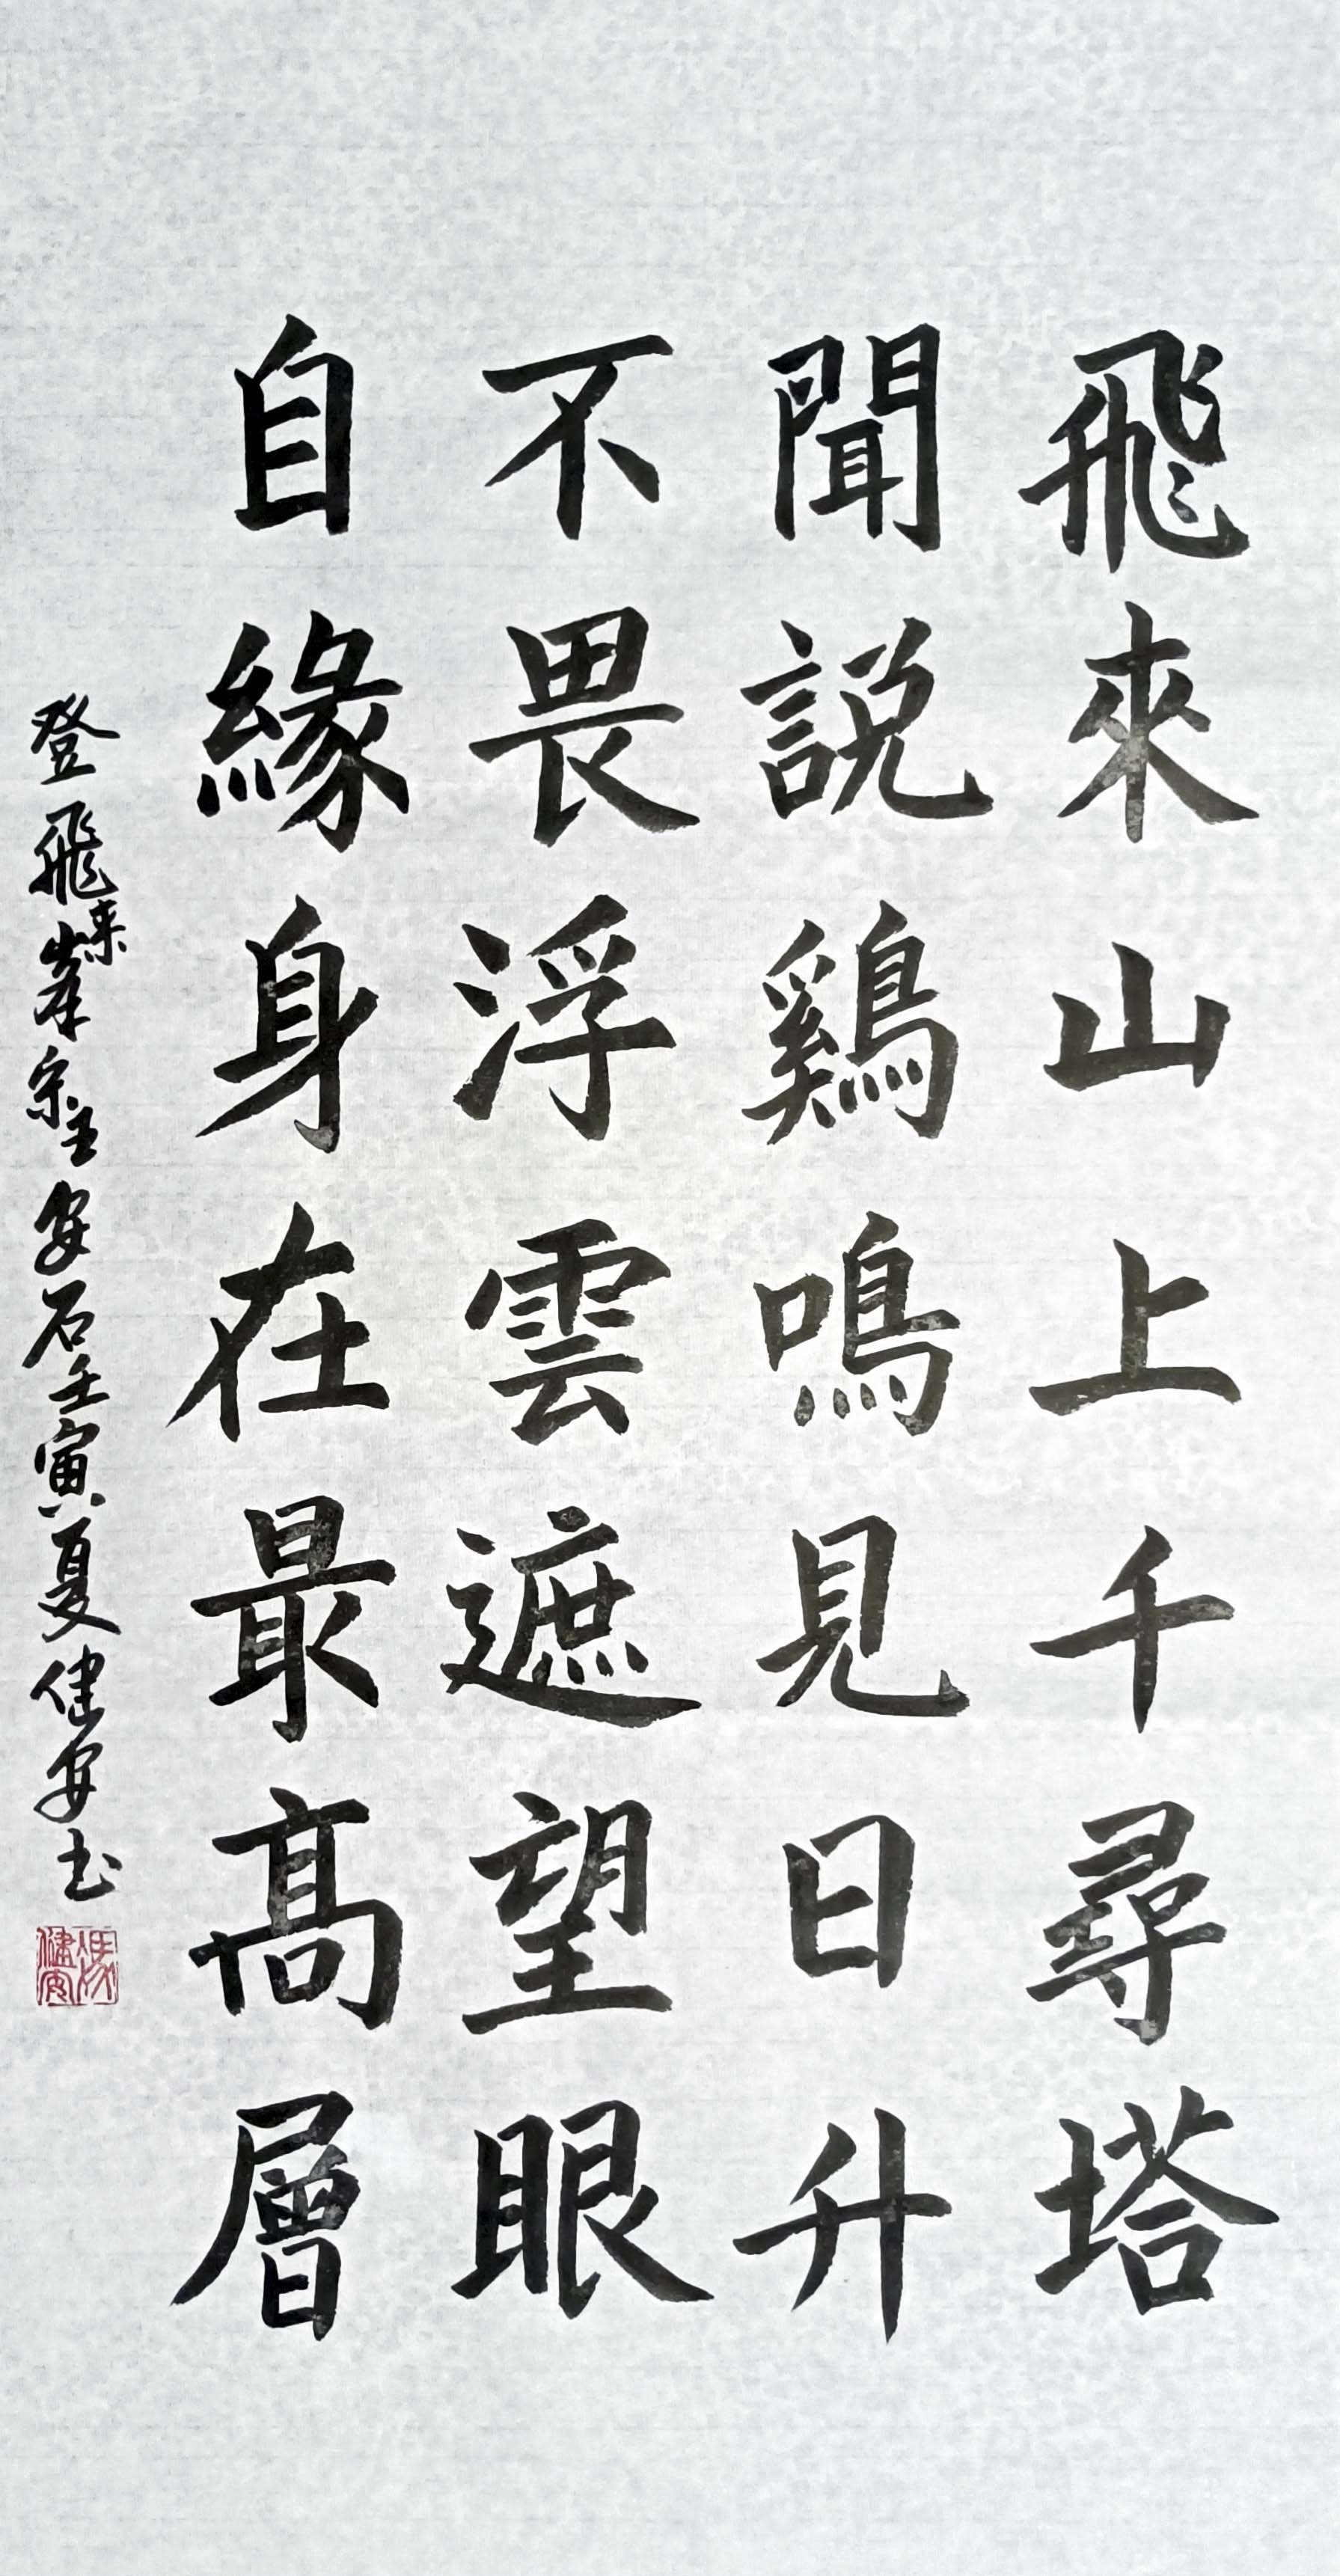 飛來山上千尋塔
聞説鷄鳴見日升
不畏浮雲遮望眼
自緣身在最高層
登飛来峯宋王安石壬寅夏健安书
馮健安